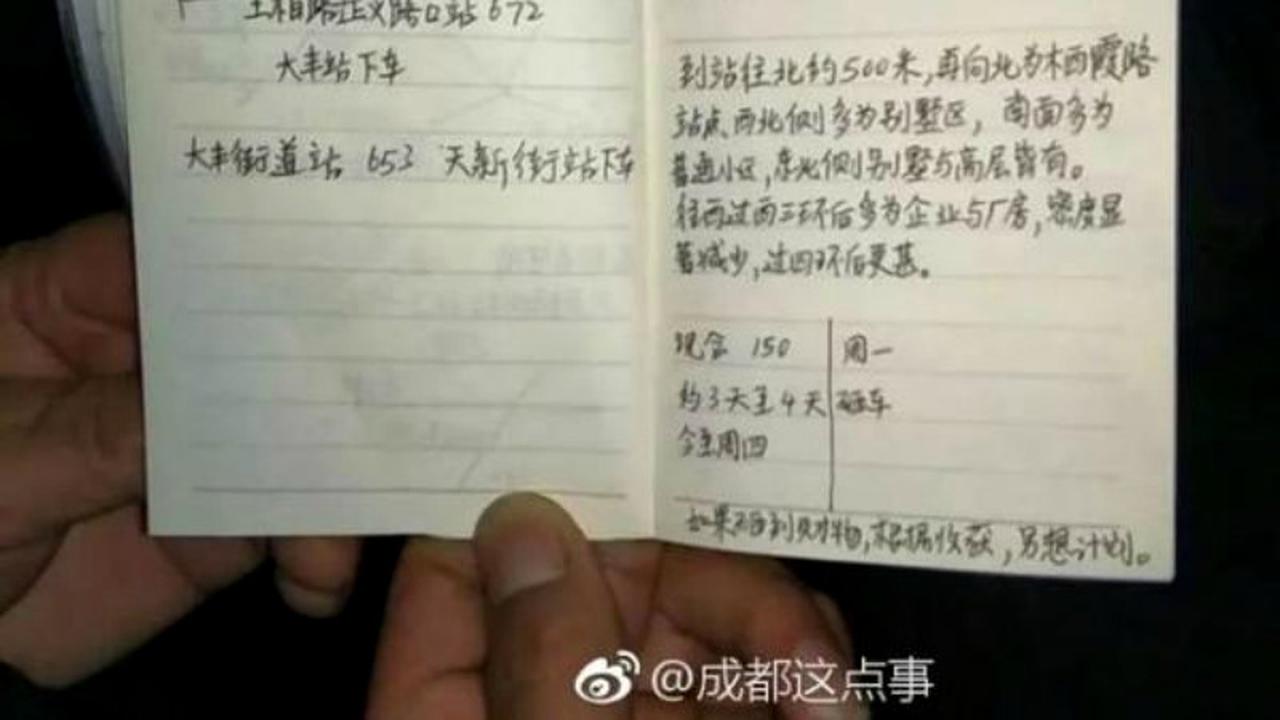 站672
大丰站下车
大丰街道站 653 天新街站下车
到站往北约500米,再向北为栖霞路
站点西北侧多为别墅区,南面多为
普通小区,东北侧别墅与高层皆有。
往西过西三环后多为企业与厂房,密度显
著减少,过四环后更甚。
现金 150
周一
约3天至4天
砸车
今至周四
如果不到财物,根据收获,另想计划。
@成都这点事